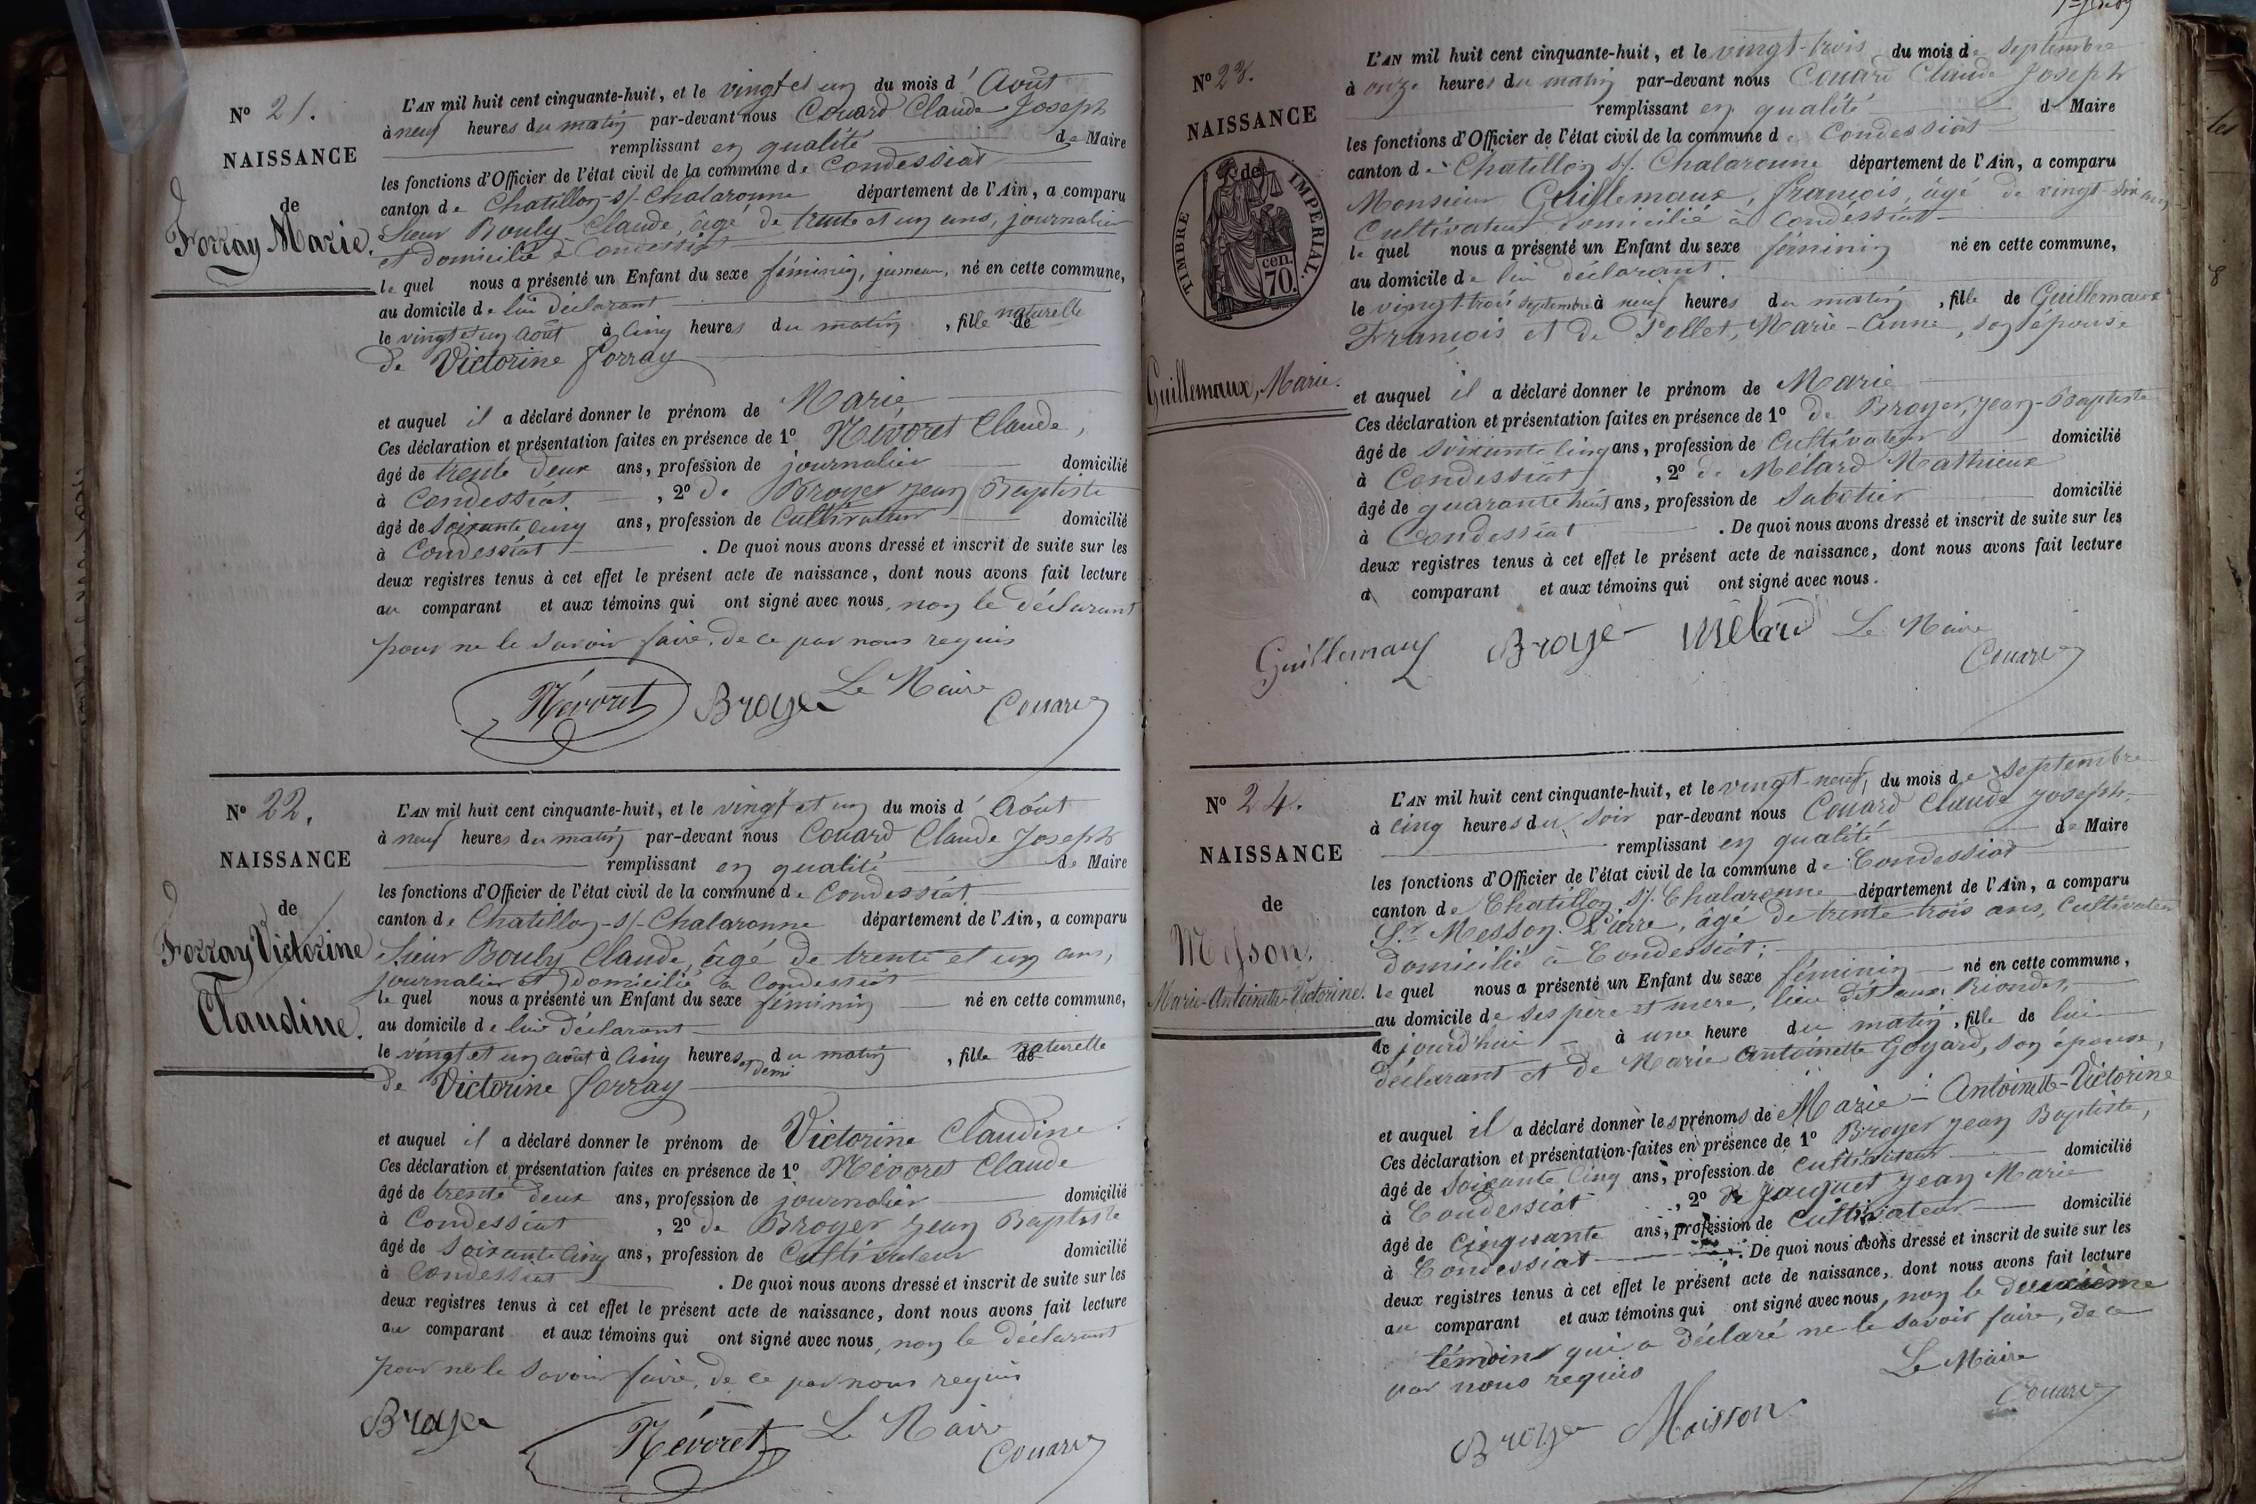 N° 21.
NAISSANCE
de
Forray Marie.
L'AN mil huit cent cinquante-huit, et le vingt et un du mois d' Août
à neuf heures du matin par-devant nous Couard Claude Joseph
remplissant en qualité de Maire
les fonctions d'Officier de l'état civil de la commune de Condessiat
canton de Chatillon-s/-Chalaronne département de l'Ain, a comparu
Sieur Bouly Claude, âgé de trente et un ans, journalier
et domicilié à Condessiat
le quel nous a présenté un Enfant du sexe féminin, jumeau, né en cette commune,
au domicile de lui déclarant
le vingt et un Août à cinq heures du matin, fille de naturelle
de Victorine forray
et auquel il a déclaré donner le prénom de Marie,
Ces déclaration et présentation faites en présence de 1° Névoret Claude,
âgé de trente deux ans, profession de journalier domicilié
à Condessiat, 2° de Broyer Jean Baptiste
âgé de soixante cinq ans, profession de Cultivateur domicilié
à Condessiat. De quoi nous avons dressé et inscrit de suite sur les
deux registres tenus à cet effet le présent acte de naissance, dont nous avons fait lecture
au comparant et aux témoins qui ont signé avec nous, non le déclarant
pour ne le savoir faire, de ce par nous requis
Névoret Broyer Le Maire
Couard
N° 22.
NAISSANCE
de
Forray Victorine
Claudine.
L'AN mil huit cent cinquante-huit, et le vingt et un du mois d' Août
à neuf heures du matin par-devant nous Couard Claude Joseph
remplissant en qualité de Maire
les fonctions d'Officier de l'état civil de la commune de Condessiat
canton de Chatillon-s/-Chalaronne département de l'Ain, a comparu
Sieur Bouly Claude, âgé de trente et un ans,
journalier et domicilié à Condessiat
le quel nous a présenté un Enfant du sexe féminin né en cette commune,
au domicile de lui déclarant
le vingt et un août à cinq heures et demi du matin, fille de naturelle
de Victorine forray
et auquel il a déclaré donner le prénom de Victorine Claudine.
Ces déclaration et présentation faites en présence de 1° Névoret Claude
âgé de trente deux ans, profession de journalier domicilié
à Condessiat, 2° de Broyer Jean Baptiste
âgé de soixante cinq ans, profession de Cultivateur domicilié
à Condessiat. De quoi nous avons dressé et inscrit de suite sur les
deux registres tenus à cet effet le présent acte de naissance, dont nous avons fait lecture
au comparant et aux témoins qui ont signé avec nous, non le déclarant
pour ne le savoir faire, de ce par nous requis
Broyer Névoret Le Maire
Couard
N° 23.
NAISSANCE
de
TIMBRE IMPÉRIAL.
cen.
70.
Guillemaux, Marie.
L'AN mil huit cent cinquante-huit, et le vingt-trois du mois de Septembre
à onze heures du matin par-devant nous Couard Claude Joseph
remplissant en qualité d Maire
les fonctions d'Officier de l'état civil de la commune de Condessiat
canton de Chatillon s/. Chalaronne département de l'Ain, a comparu
Monsieur Guillemaux, françois, âgé de vingt-six ans
Cultivateur domicilié à Condessiat
le quel nous a présenté un Enfant du sexe féminin né en cette commune,
au domicile de lui déclarant.
le vingt-trois septembre à neuf heures du matin, fille de Guillemaux
François et de Pollet, Marie-Anne, son épouse
et auquel il a déclaré donner le prénom de Marie
Ces déclaration et présentation faites en présence de 1° de Broyer, Jean-Baptiste
âgé de soixante cinq ans, profession de Cultivateur domicilié
à Condessiat, 2° de Mélard Mathieux
âgé de quarante huit ans, profession de Sabotier domicilié
à Condessiat. De quoi nous avons dressé et inscrit de suite sur les
deux registres tenus à cet effet le présent acte de naissance, dont nous avons fait lecture
a comparant et aux témoins qui ont signé avec nous.
Guillemaux Broyer Mélard Le Maire
Couard
N° 24.
NAISSANCE
de
Messon,
Marie-Antoinette-Victorine.
L'AN mil huit cent cinquante-huit, et le vingt-neuf, du mois de Septembre
à cinq heures du soir par-devant nous Couard Claude Joseph
remplissant en qualité de Maire
les fonctions d'Officier de l'état civil de la commune de Condessiat
canton de Chatillon s/. Chalaronne département de l'Ain, a comparu
Sr. Messon Pierre, âgé de trente trois ans, Cultivateur
domicilié à Condessiat;
le quel nous a présenté un Enfant du sexe féminin né en cette commune,
au domicile de ses père et mère, lieu dit aux Riondes,
le jourd'hui à une heure du matin, fille de lui
déclarant et de Marie Antoinette Goyard, son épouse,
et auquel il a déclaré donner les prénoms de Marie-Antoinette-Victorine
Ces déclaration et présentation faites en présence de 1° Broyer Jean Baptiste,
âgé de soixante cinq ans, profession de Cultivateur domicilié
à Condessiat, 2° de Jauquet Jean Marie
âgé de cinquante ans, profession de Cultivateur domicilié
à Condessiat. De quoi nous avons dressé et inscrit de suite sur les
deux registres tenus à cet effet le présent acte de naissance, dont nous avons fait lecture
au comparant et aux témoins qui ont signé avec nous, non le deuxième
témoins qui a déclaré ne le savoir faire, de ce
par nous requis
Le Maire
Broyer Maisson Couard